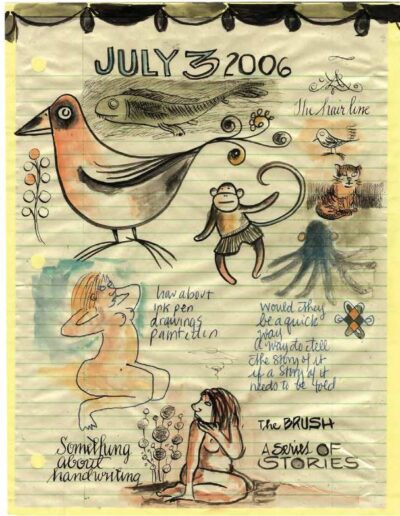 JULY 3 2006
The hair line
how about
ink pen
drawings
painted in
would they
be a quick
way
a way to tell
the story of it
if a story of it
needs to be told
The BRUSH
A Series OF
STORIES
Something
about
handwriting